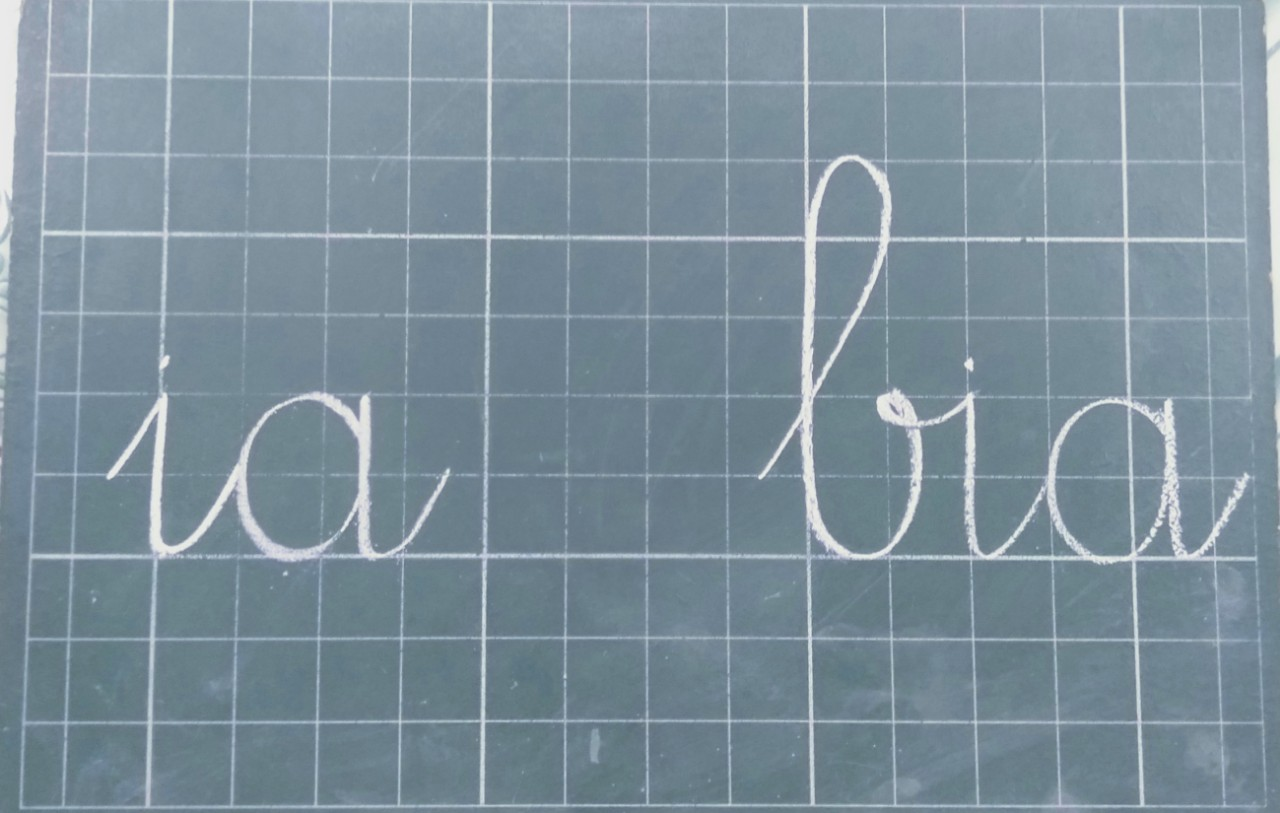 ia bia